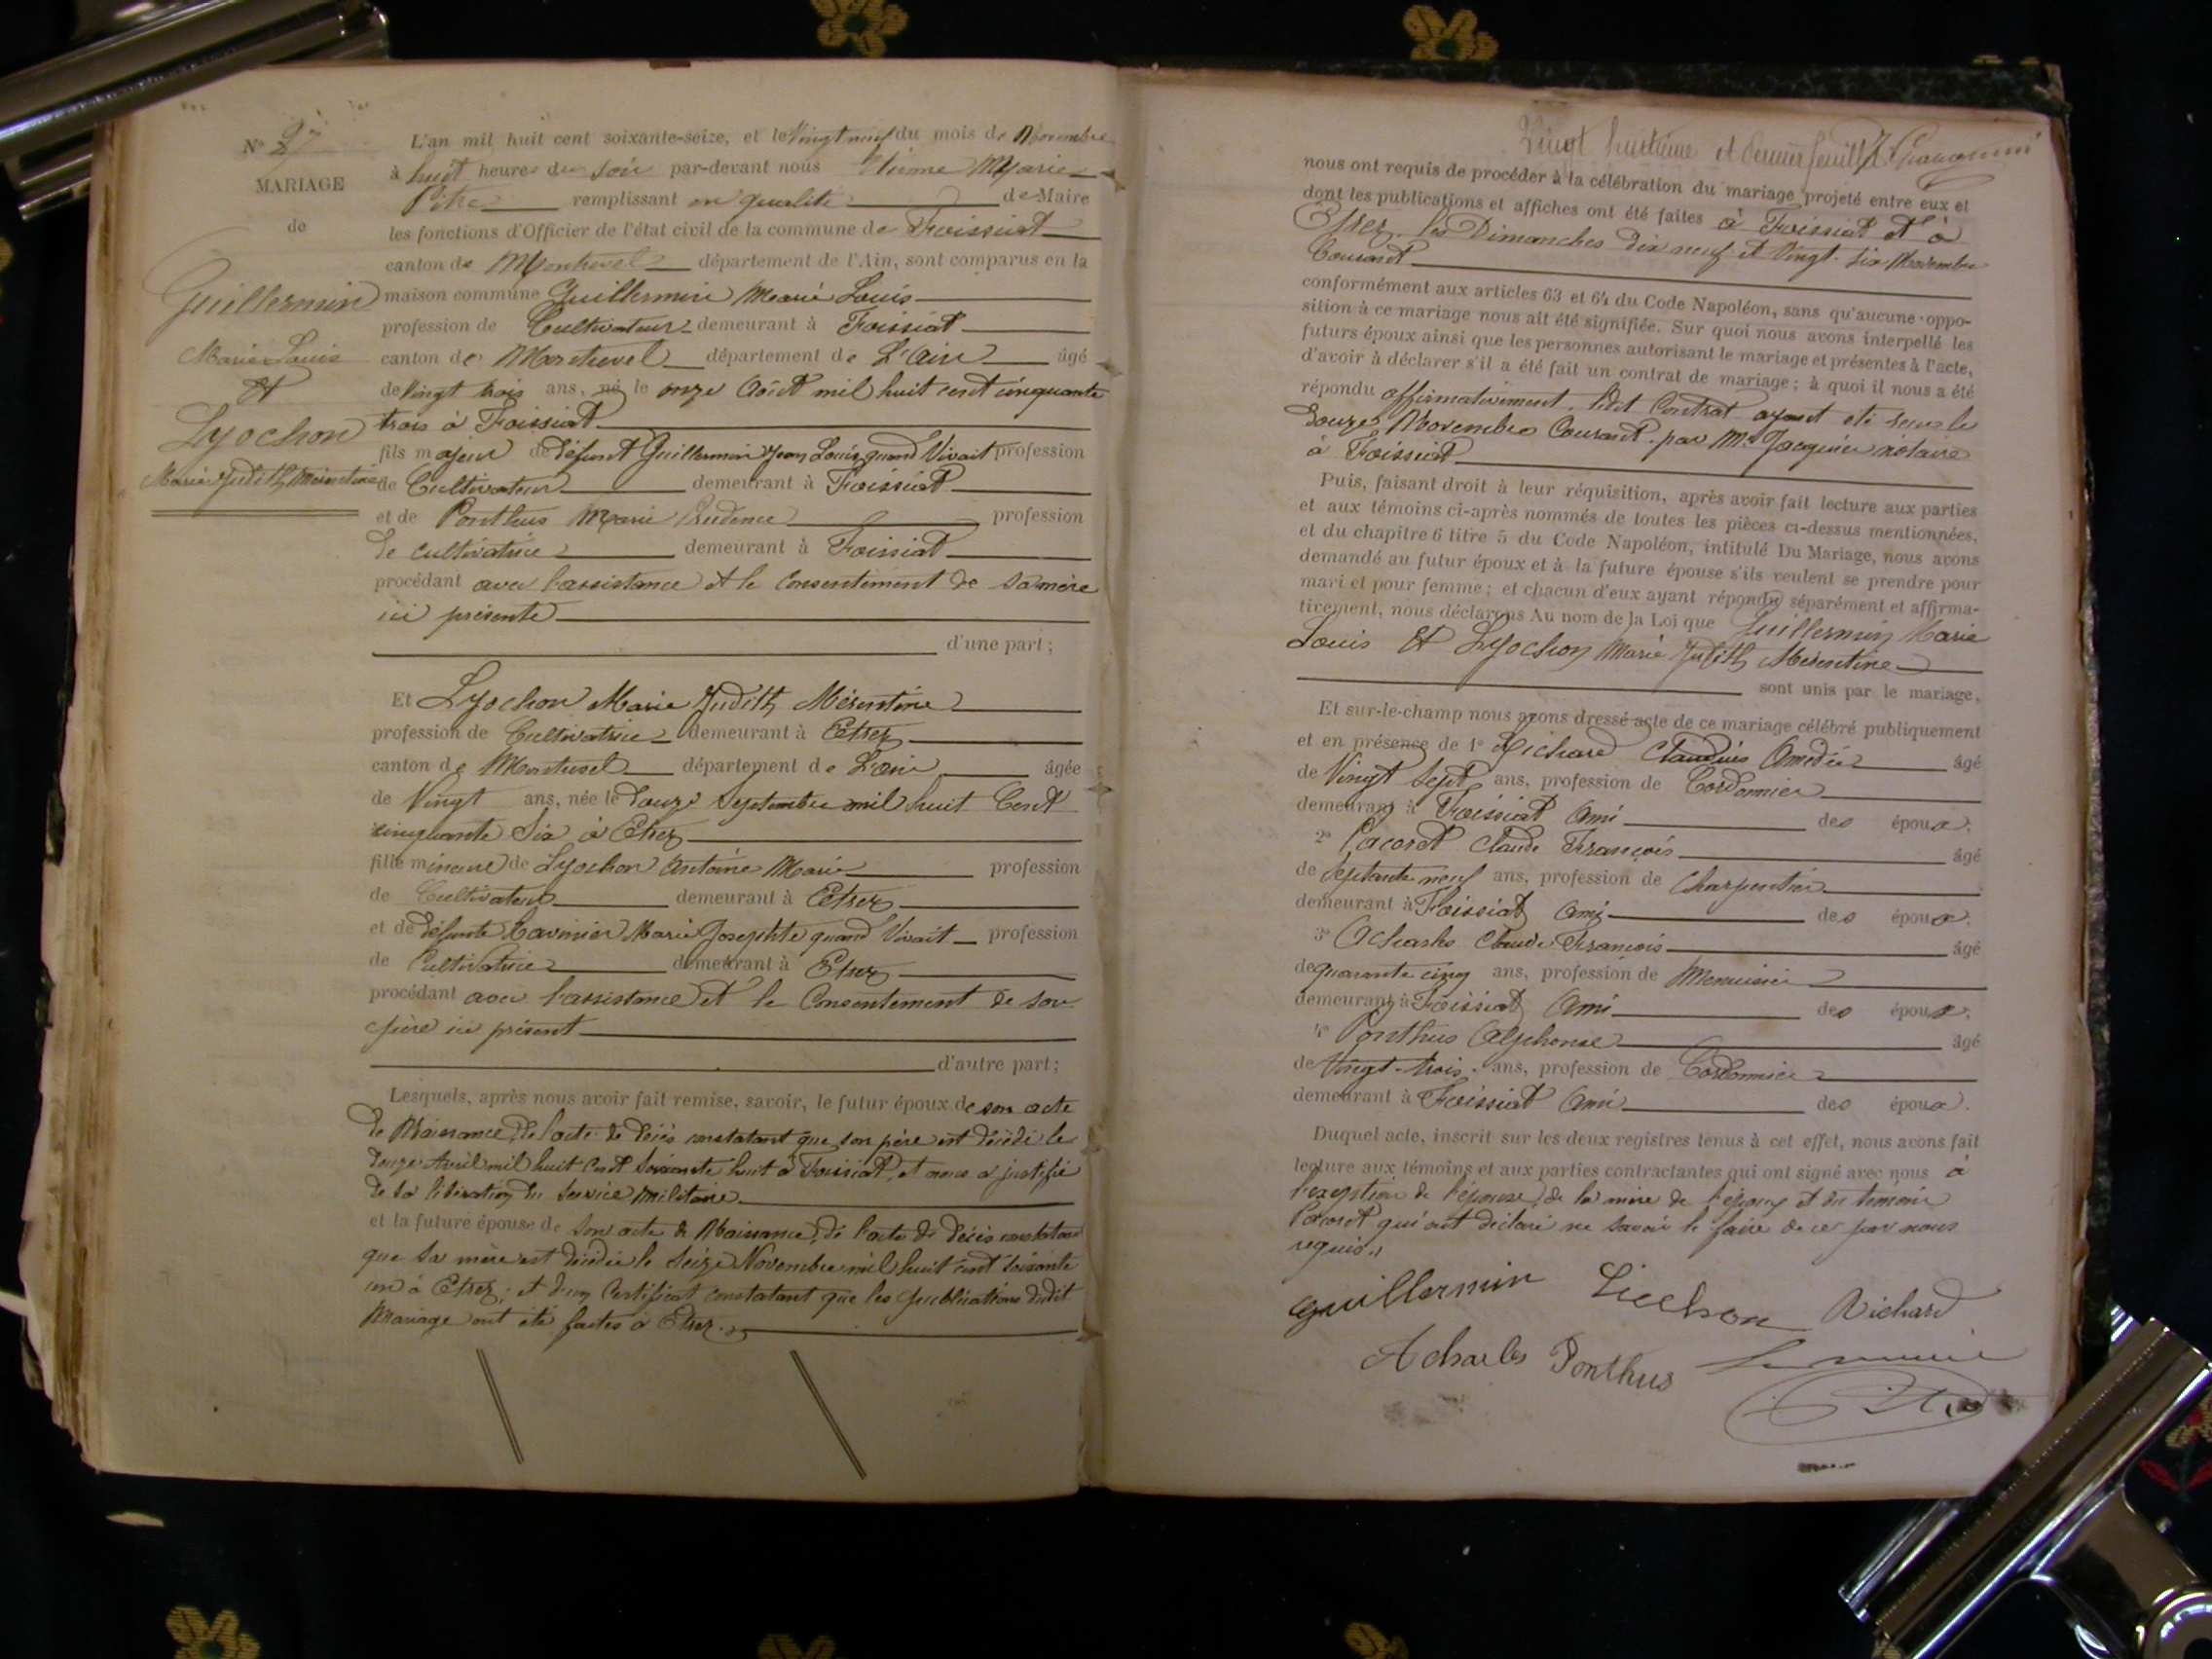 N° 27
MARIAGE
de
Guillermin
Marie Louis
et
Lyochon
Marie Judith Mésentine
L'an mil huit cent soixante-seize, et le Vingt neuf du mois de Novembre
à huit heures du soir par-devant nous Marie
remplissant en qualité de Maire
les fonctions d'Officier de l'état civil de la commune de Foissiat
canton de Montrevel département de l'Ain, sont comparus en la
maison commune Guillermin Marie Louis
profession de Cultivateur demeurant à Foissiat
canton de Montrevel département de L'Ain âgé
de Vingt trois ans, né le onze Août mil huit cent cinquante
trois à Foissiat
fils majeur de défunt Guillermin Jean Louis quand Vivait profession
de Cultivateur demeurant à Foissiat
et de Ponthus Marie Prudence profession
de cultivatrice demeurant à Foissiat
procédant avec l'assistance et le Consentement de sa mère
ici présente
d'une part;
Et Lyochon Marie Judith Mésentine
profession de Cultivatrice demeurant à Etrez
canton de Montrevel département de L'ain âgée
de Vingt ans, née le Douze Septembre mil huit Cent
cinquante Six à Etrez
fille mineure de Lyochon Antoine Marie profession
de Cultivateur demeurant à Etrez
et de défunte Marie Josephte quand Vivait profession
de Cultivatrice demeurant à Etrez
procédant avec l'assistance et le Consentement de son
père ici présent
d'autre part;
Lesquels, après nous avoir fait remise, savoir, le futur époux de son acte
de Naissance, de l'acte de décès constatant que son père est décédé le
douze Avril mil huit Cent Soixante huit à Foissiat, et nous a justifié
de sa libération du Service Militaire
et la future épouse de son acte de Naissance, de l'acte de décès constatant
que sa mère est décédée le Seize Novembre mil huit cent soixante
un à Etrez; et d'un Certificat constatant que les publications dudit
Mariage ont été faites à Etrez.
Vingt huitième et dernier feuillet
nous ont requis de procéder à la célébration du mariage projeté entre eux et
dont les publications et affiches ont été faites à Foissiat et à
Etrez les Dimanches dix neuf et Vingt-six Novembre
Courant
conformément aux articles 63 et 64 du Code Napoléon, sans qu'aucune oppo-
sition à ce mariage nous ait été signifiée. Sur quoi nous avons interpellé les
futurs époux ainsi que les personnes autorisant le mariage et présentes à l'acte,
d'avoir à déclarer s'il a été fait un contrat de mariage; à quoi il nous a été
répondu affirmativement, ledit Contrat ayant été reçu le
Douze Novembre Courant par Me Jacquier notaire
à Foissiat
Puis, faisant droit à leur réquisition, après avoir fait lecture aux parties
et aux témoins ci-après nommés de toutes les pièces ci-dessus mentionnées,
et du chapitre 6 titre 5 du Code Napoléon, intitulé Du Mariage, nous avons
demandé au futur époux et à la future épouse s'ils veulent se prendre pour
mari et pour femme; et chacun d'eux ayant répondu séparément et affirma-
tivement, nous déclarons Au nom de la Loi que Guillermin Marie
Louis Et Lyochon Marie Judith Mésentine
sont unis par le mariage.
Et sur-le-champ nous avons dressé acte de ce mariage célébré publiquement
et en présence de 1° Richard Claudius Amédée âgé
de Vingt Sept ans, profession de Cordonnier
demeurant à Foissiat Ami des époux.
2° Pacoret Claude François âgé
de Septante neuf ans, profession de Charpentier
demeurant à Foissiat Ami des époux.
3° Acharles Claude François âgé
de quarante cinq ans, profession de Menuisier
demeurant à Foissiat Ami des époux.
4° Ponthus Alphonse âgé
de Vingt-trois ans, profession de Cordonnier
demeurant à Foissiat Ami des époux.
Duquel acte, inscrit sur les deux registres tenus à cet effet, nous avons fait
lecture aux témoins et aux parties contractantes qui ont signé avec nous à
l'exception de l'épouse, de la mère de l'époux et du témoin
Pacoret qui ont déclaré ne savoir le faire de ce par nous
requis.
Guillermin Liochon Richard
Acharles Ponthus Le maire